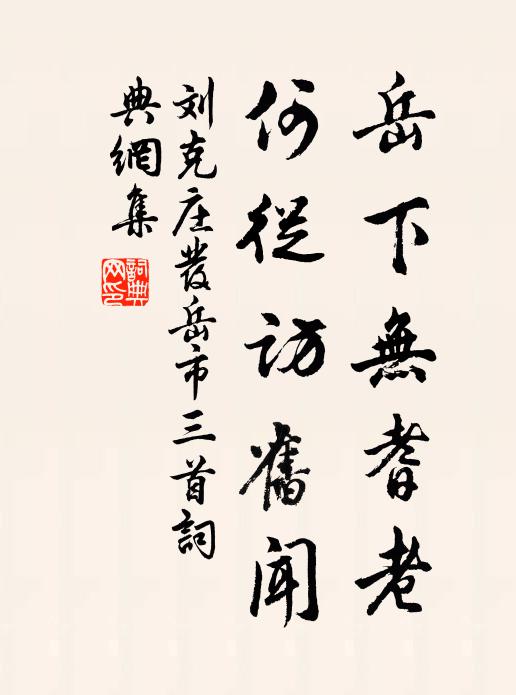 岳下無耆老
何從訪舊聞
刘克庄發岳市三首詞
典網集
詞典网印